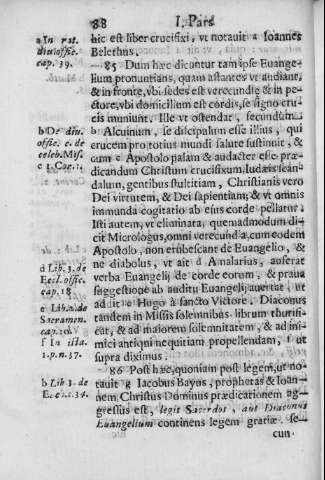 88 I. Pars
hic est liber crucifixi, vt notauit a Ioannes
Belethus.
85 Dum hæc dicuntur tam ipse Euange-
lium pronuntians, quam astantes vt audiant,
& in fronte, vbi sedes est verecundię & in pe-
ctore, vbi domicilium est cordis, se signo cru-
cis muniunt. Ille vt ostendat, secundùm
b Alcuinum, se discipulum esse illius, qui
crucem pro totius mundi salute sustinuit, &
cum c Apostolo palam & audacter esse præ-
dicandum Christum crucifixum, Iudæis scan-
dalum, gentibus stultitiam, Christianis vero
Dei virtutem, & Dei sapientiam; & vt omnis
immunda cogitatio ab eius corde pellatur.
Isti autem, vt eliminata, quemadmodum di-
cit Micrologus, omni verecundia, cum eodem
Apostolo, non erubescant de Euangelio, &
ne diabolus, vt ait d Amalarius, auferat
verba Euangelij de corde eorum, & praua
suggestione ab auditu Euangelij auertat, vt
addit e Hugo à sancto Victore. Diaconus
tandem in Missis solemnibus librum thurifi-
cat, & ad maiorem solemnitatem, & ad ini-
mici antiqui nequitiam propellendam, f ut
supra diximus.
86 Post hæc, quoniam post legem, ut no-
tauit g Iacobus Bayus, prophetas & Ioan-
nem Christus Dominus prædicationem ag-
gressus est, legit Sacerdos, aut Diaconus
Euangelium continens legem gratiæ se-
cun-
a In rat.
diu. offic.
cap. 39.
b De diu.
offic. c. de
celeb. Mis.
c 1. Cor. 1.
d Lib. 3. de
Eccl. offic.
cap. 18.
e Lib. 2. de
Sacramen.
f In illa.
1. p. n. 37.
b Lib 3. de